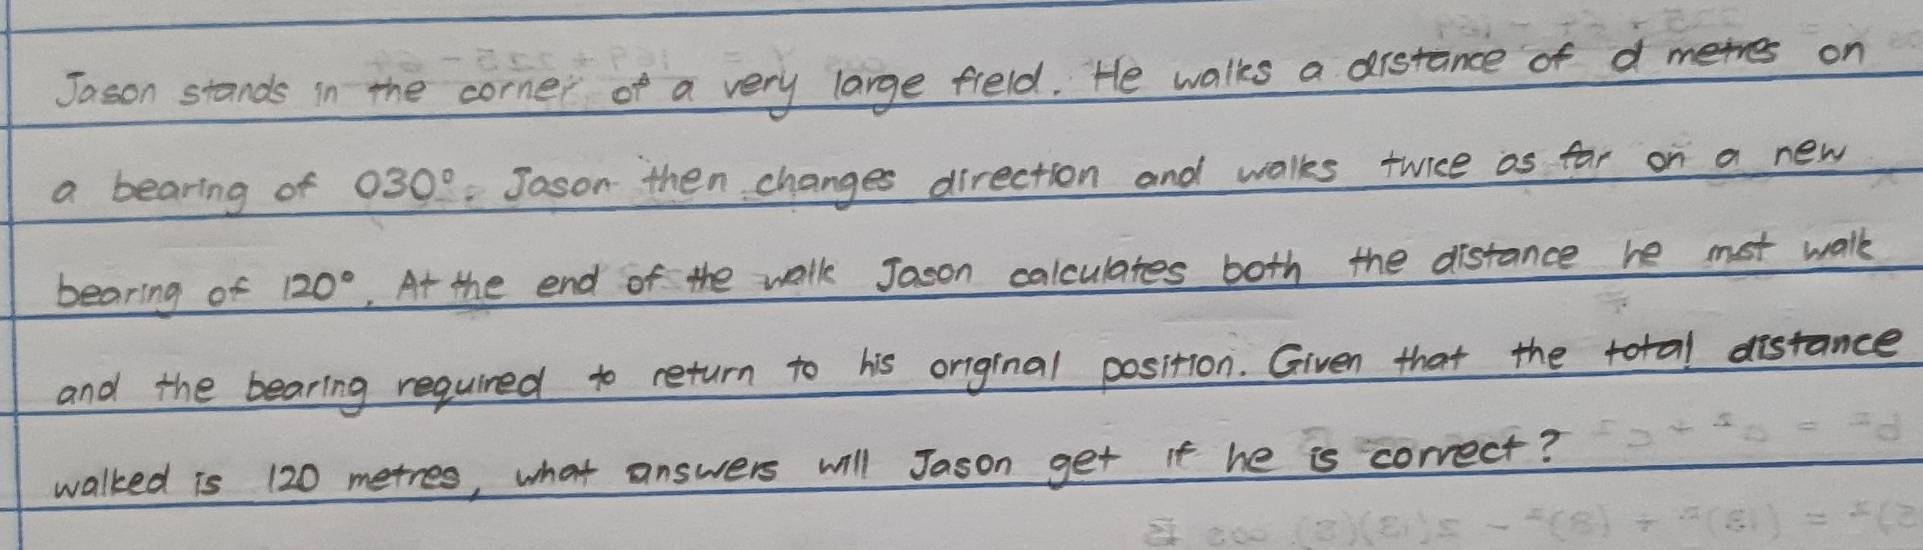 Jason stands in the corner of a very large field. He walks a distance of d metres on
a bearing of 030°. Jason then changes direction and walks twice as far on a new
bearing of 120°. At the end of the walk Jason calculates both the distance he mst walk
and the bearing required to return to his original position. Given that the total distance
walked is 120 metres, what answers will Jason get if he is correct?